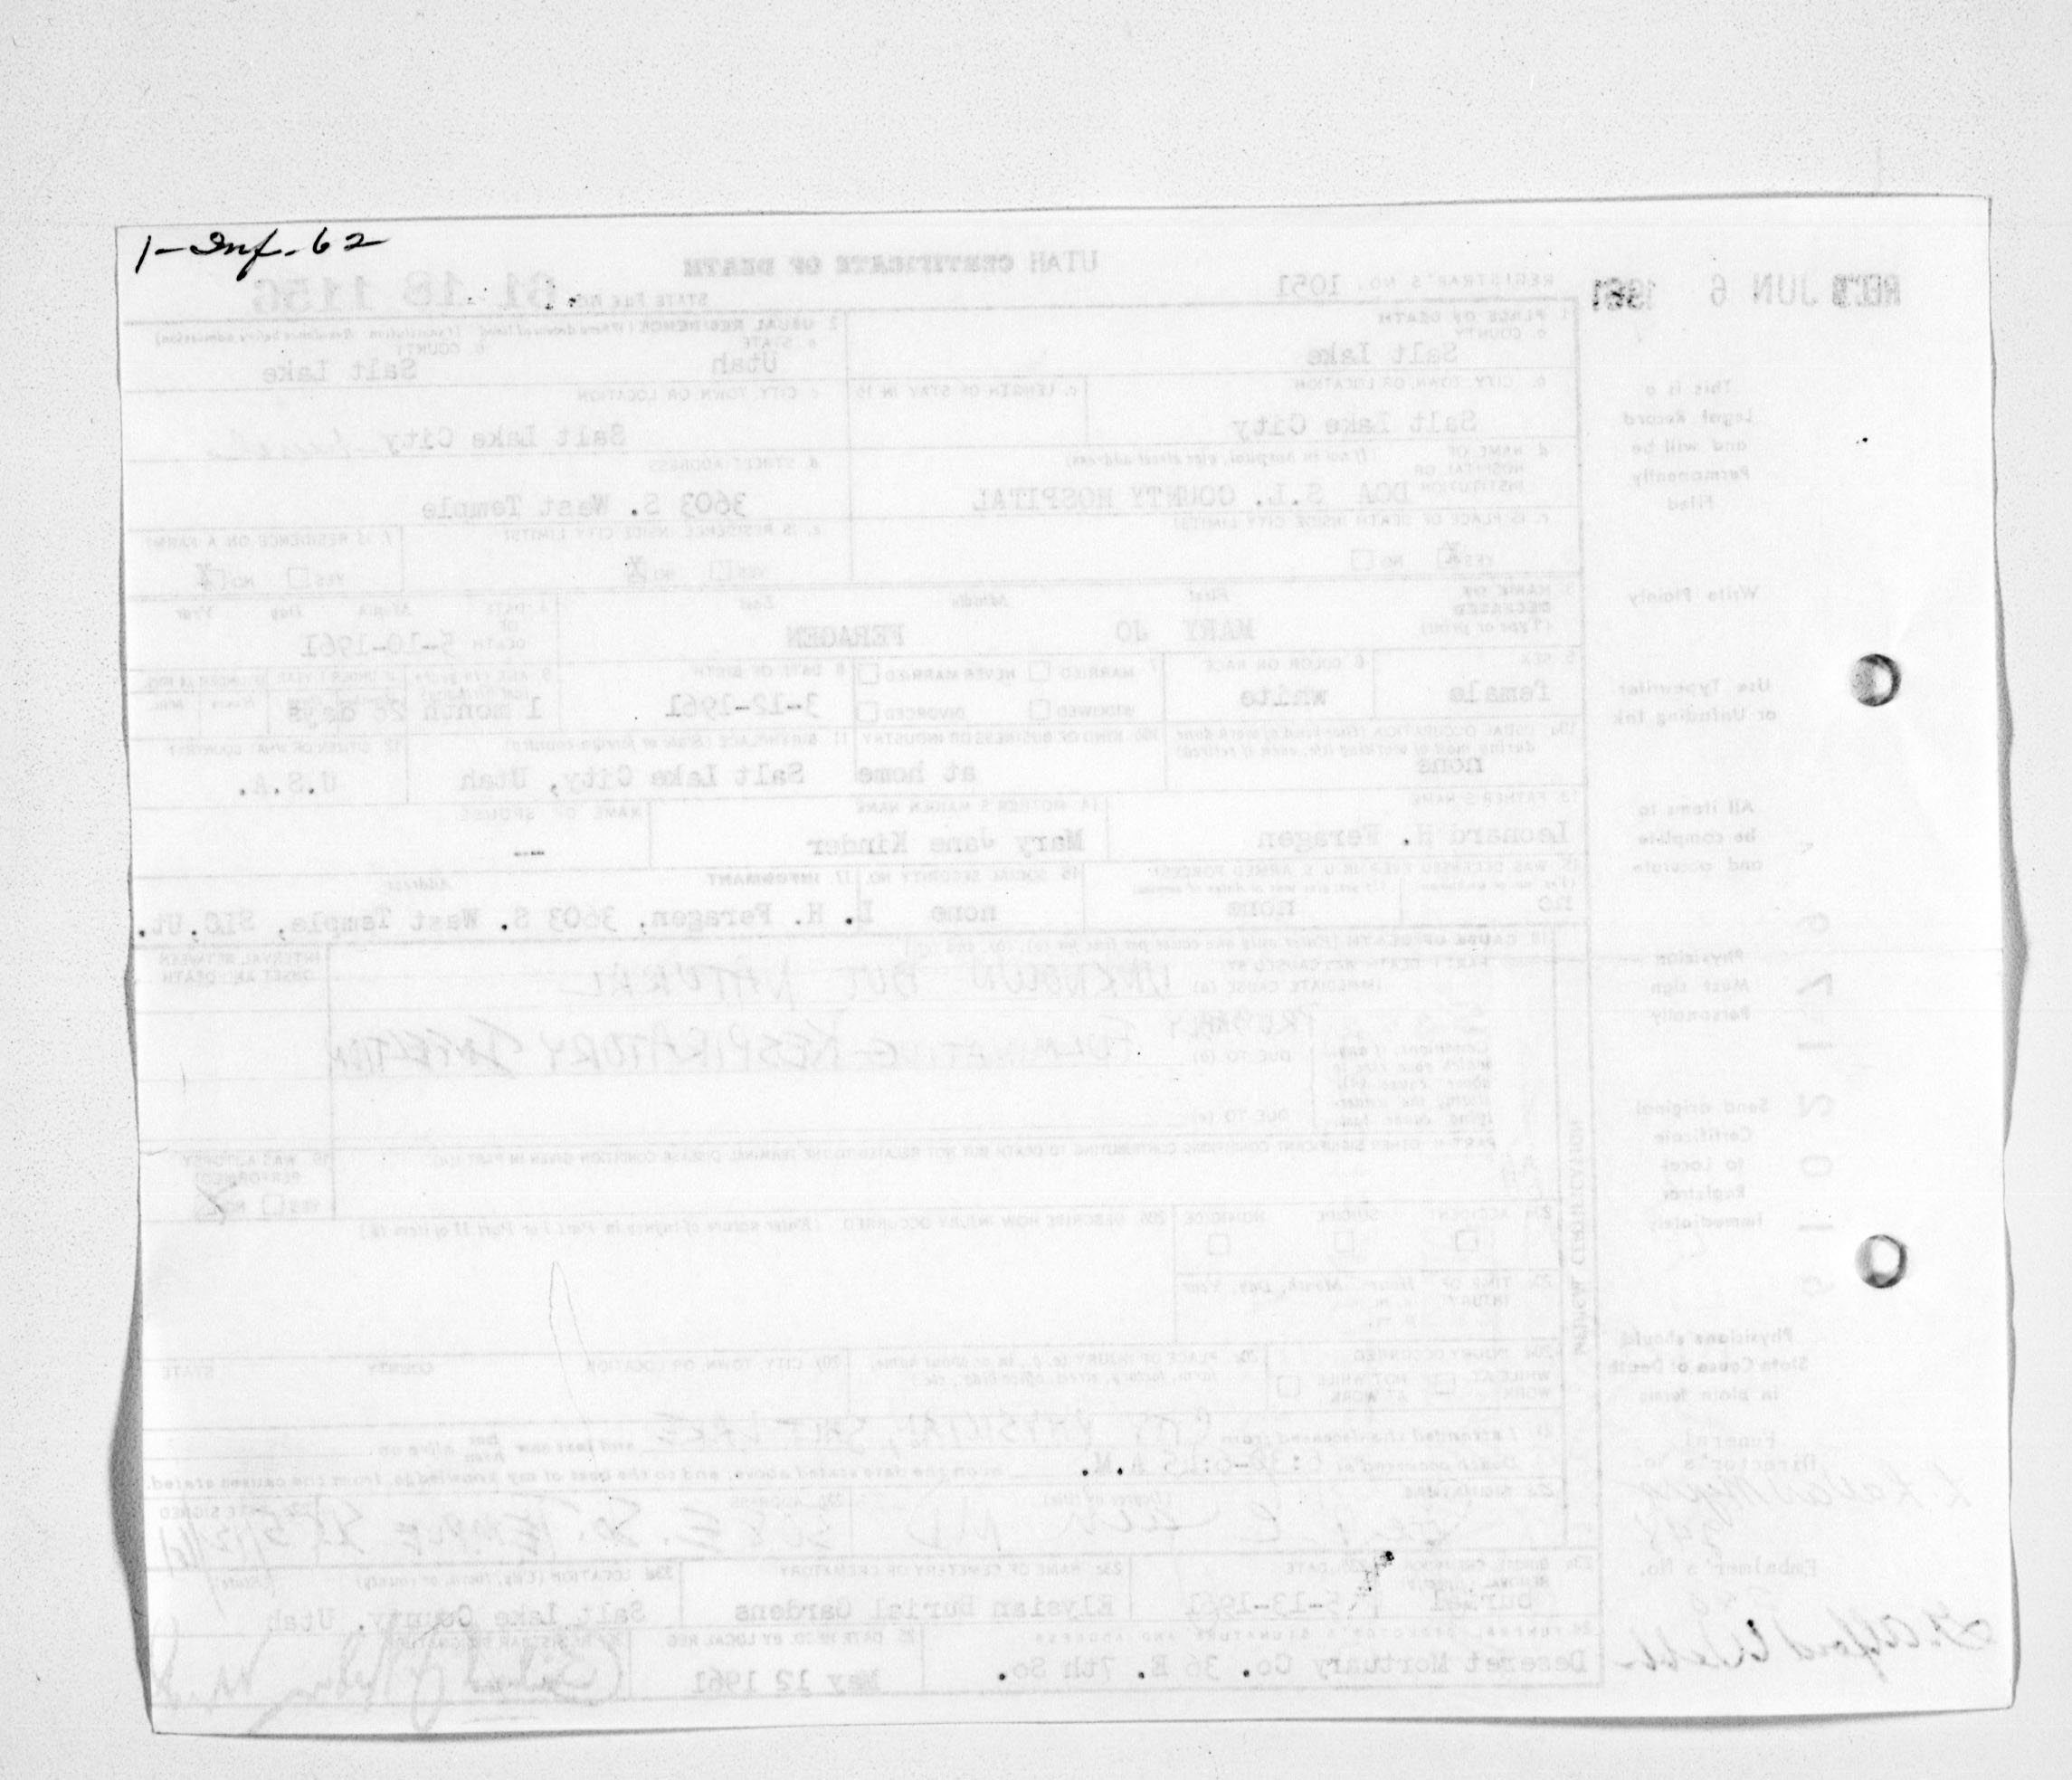 1-Inf-62
UTAH CERTIFICATE OF DEATH
REC'D JUN 6 1961
REGISTRAR'S NO. 1051
STATE FILE NO. 61 18 1156
1 PLACE OF DEATH
a. COUNTY
Salt Lake
2 USUAL RESIDENCE (Where deceased lived. If institution: Residence before admission)
a STATE
Utah
b COUNTY
Salt Lake
b. CITY, TOWN, OR LOCATION
Salt Lake City
c. LENGTH OF STAY IN 1b
c CITY, TOWN, OR LOCATION
Salt Lake City
d NAME OF HOSPITAL OR INSTITUTION (If not in hospital, give street address)
DOA S.L. COUNTY HOSPITAL
d. STREET ADDRESS
3603 S. West Temple
e. IS PLACE OF DEATH INSIDE CITY LIMITS?
YES X NO
e. IS RESIDENCE INSIDE CITY LIMITS?
YES NO X
f. IS RESIDENCE ON A FARM?
YES NO X
3 NAME OF DECEASED (Type or print)
First Middle Last
MARY JO FERAGEN
4 DATE OF DEATH Month Day Year
5-10-1961
5 SEX
female
6 COLOR OR RACE
white
7 MARRIED NEVER MARRIED
WIDOWED DIVORCED
8 DATE OF BIRTH
3-12-1961
9 AGE (In years last birthday) IF UNDER 1 YEAR IF UNDER 24 HRS.
1 month 28 days
10a USUAL OCCUPATION (Give kind of work done during most of working life, even if retired)
none
10b KIND OF BUSINESS OR INDUSTRY
at home
11 BIRTHPLACE (State or foreign country)
Salt Lake City, Utah
12 CITIZEN OF WHAT COUNTRY?
U.S.A.
13 FATHER'S NAME
Leonard H. Feragen
14 MOTHER'S MAIDEN NAME
Mary Jane Kinder
NAME OF SPOUSE
--
15 WAS DECEASED EVER IN U.S. ARMED FORCES?
(Yes, no, or unknown) (If yes, give war or dates of service)
no none
16 SOCIAL SECURITY NO.
none
17 INFORMANT Address
L. H. Feragen, 3603 S. West Temple, SLC, Ut.
18 CAUSE OF DEATH [Enter only one cause per line for (a), (b), and (c)]
PART I DEATH WAS CAUSED BY:
IMMEDIATE CAUSE (a) UNKNOWN BUT NATURAL
INTERVAL BETWEEN ONSET AND DEATH
Conditions, if any, which gave rise to above cause (a), stating the underlying cause last.
DUE TO (b) PROBABLY FULMINATIVE RESPIRATORY INFECTION
DUE TO (c)
PART II OTHER SIGNIFICANT CONDITIONS CONTRIBUTING TO DEATH BUT NOT RELATED TO THE TERMINAL DISEASE CONDITION GIVEN IN PART I(a)
19 WAS AUTOPSY PERFORMED?
YES NO X
MEDICAL CERTIFICATION
20a ACCIDENT SUICIDE HOMICIDE
20b DESCRIBE HOW INJURY OCCURRED. (Enter nature of injury in Part I or Part II of item 18.)
20c TIME OF INJURY Hour Month, Day, Year
a. m.
p. m.
20d INJURY OCCURRED
WHILE AT WORK NOT WHILE AT WORK
20e PLACE OF INJURY (e.g., in or about home, farm, factory, street, office bldg., etc.)
20f CITY, TOWN, OR LOCATION COUNTY STATE
21 I attended the deceased from CITY PHYSICIAN, SALT LAKE and last saw her him alive on
Death occurred at A.M. on the date stated above; and to the best of my knowledge, from the causes stated.
22a SIGNATURE (Degree or title)
MD
22b ADDRESS
E. SO. TEMPLE
22c DATE SIGNED
5/12/61
23a BURIAL, CREMATION, REMOVAL (Specify)
burial
23b DATE
5-13-1961
23c NAME OF CEMETERY OR CREMATORY
Elysian Burial Gardens
23d LOCATION (City, town, or county) (State)
Salt Lake County, Utah
24 FUNERAL DIRECTOR'S SIGNATURE AND ADDRESS
Deseret Mortuary Co. 36 E. 7th So.
25 DATE REC'D. BY LOCAL REG.
May 12 1961
26 REGISTRAR'S SIGNATURE
This is a
Legal Record
and will be
Permanently
Filed
Write Plainly
Use Typewriter
or Unfading Ink
All items to
be complete
and accurate
Physician
Must sign
Personally
Send original
Certificate
to Local
Registrar
Immediately
Physicians should
State Cause of Death
in plain terms
Funeral
Director's No.
Embalmer's No.